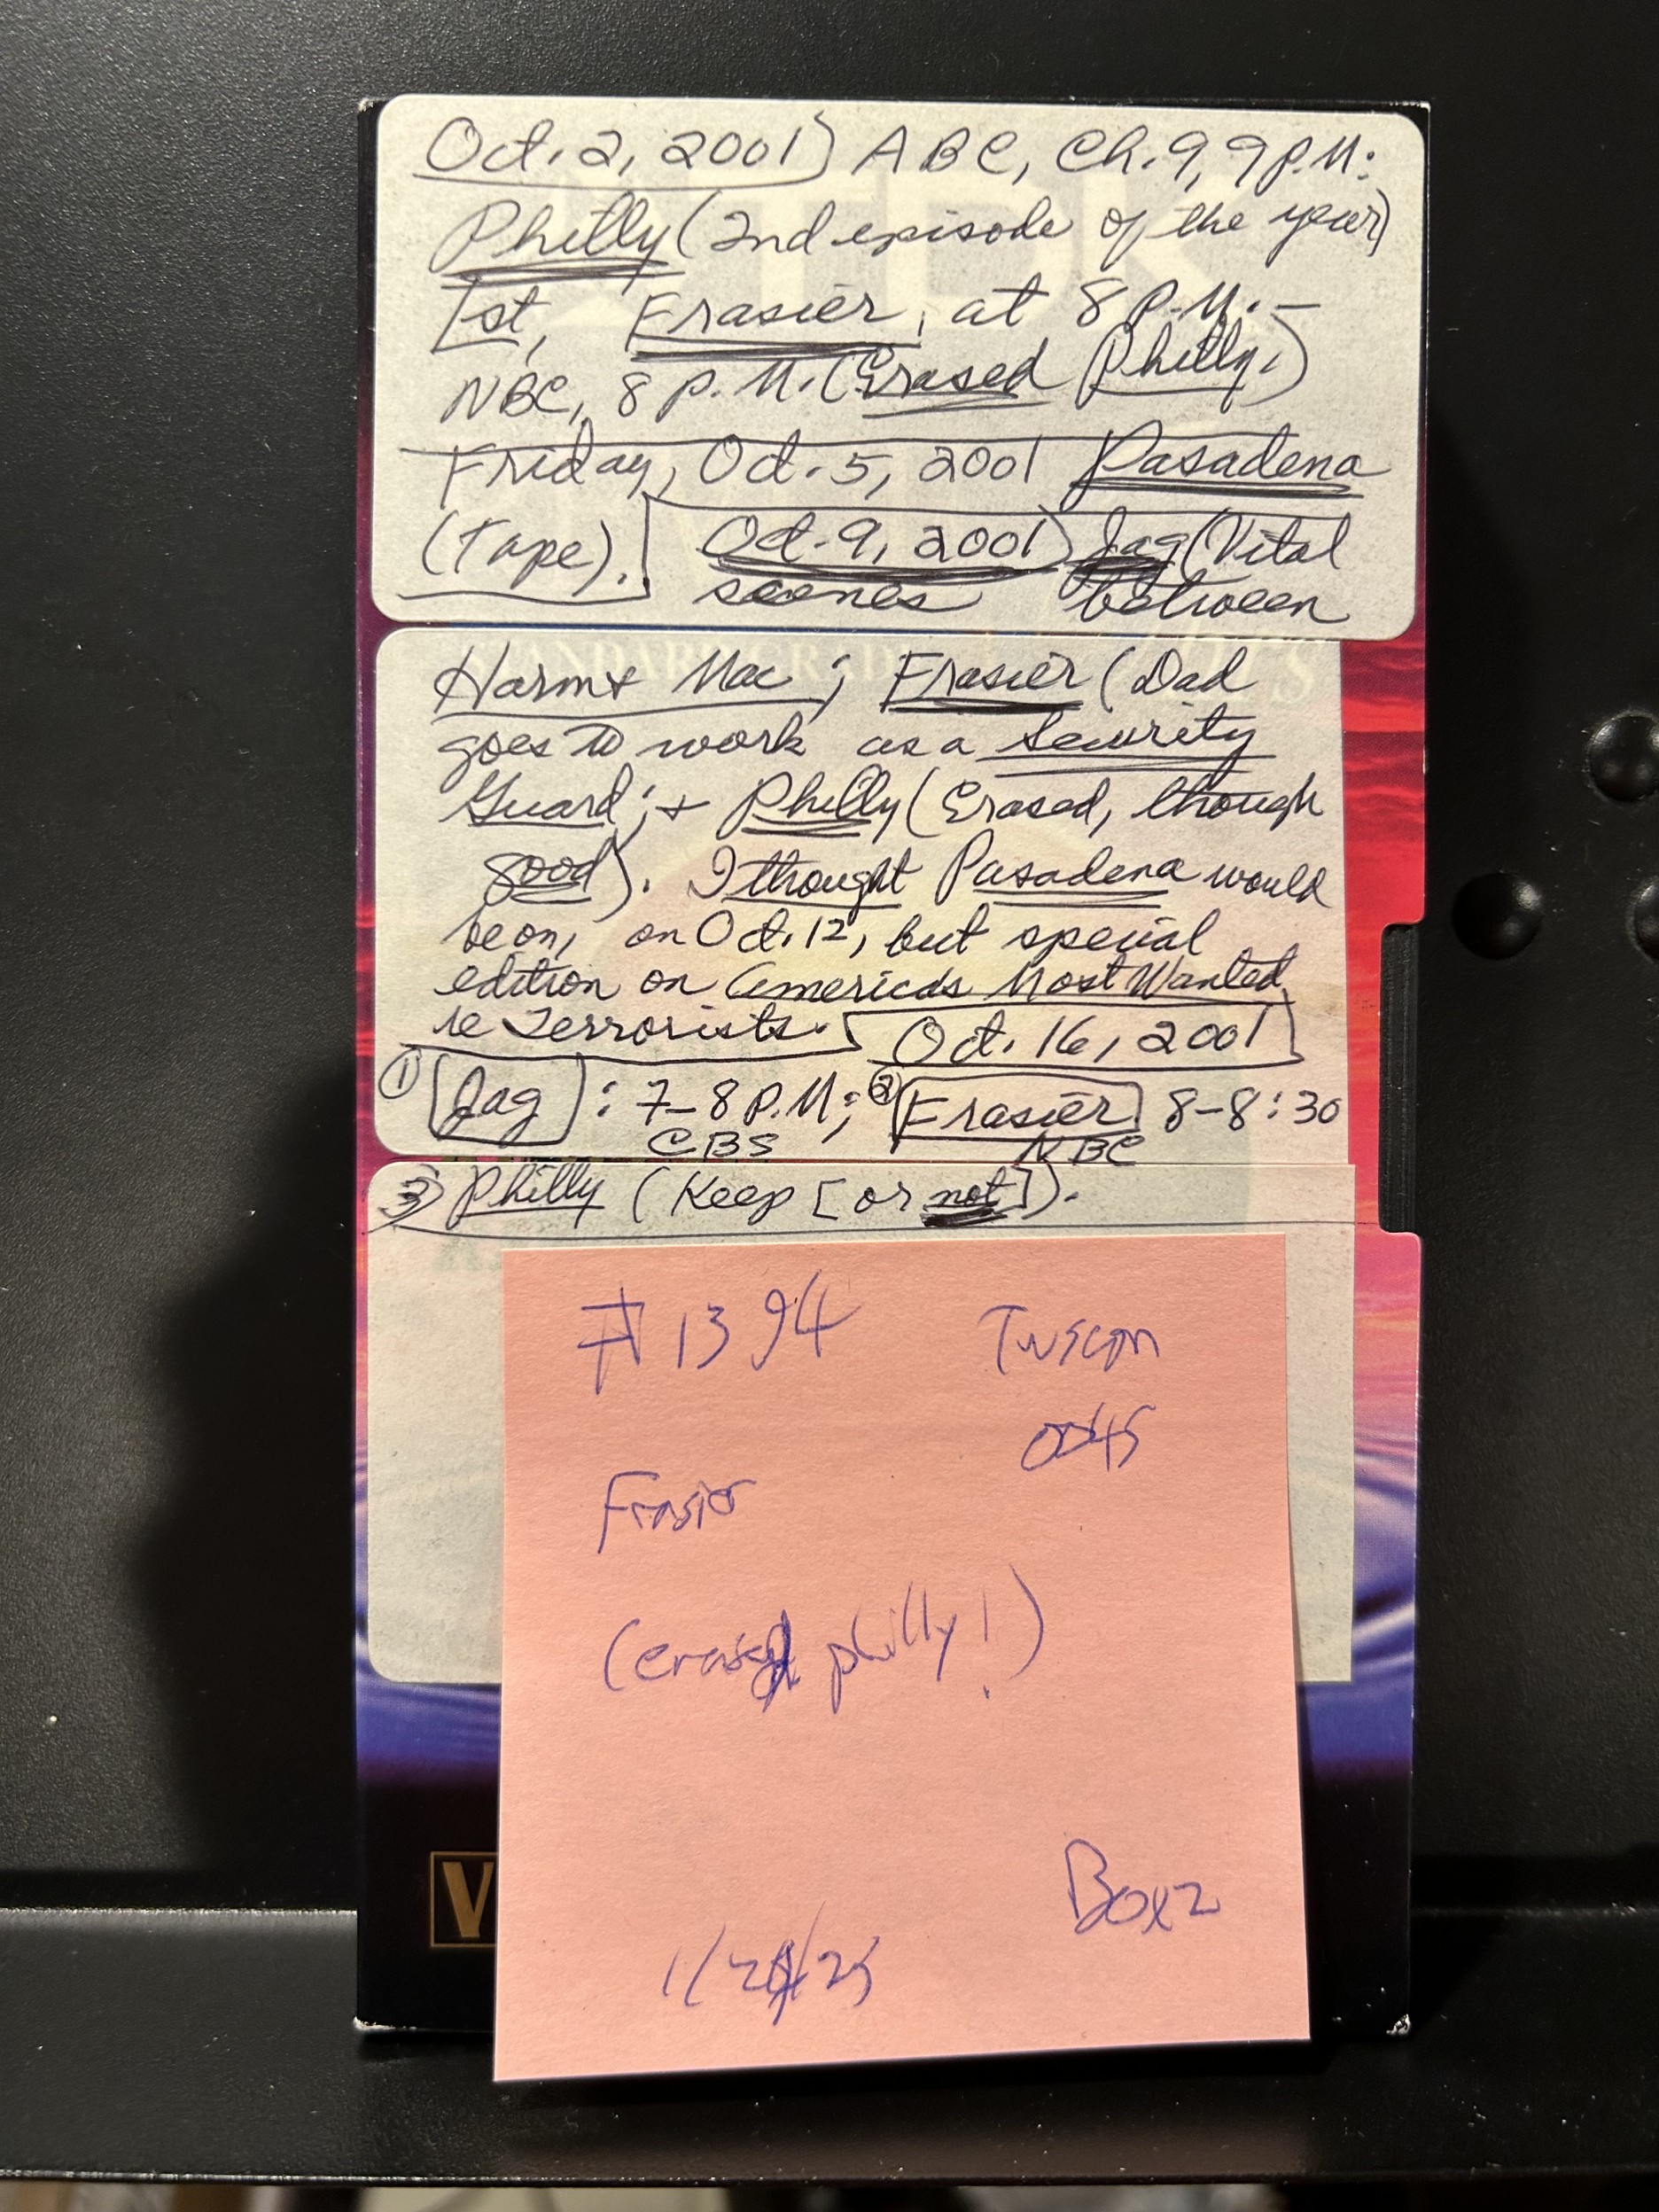 Oct. 2, 2001) ABC, Ch. 9, 9 P.M:
Philly (2nd episode of the year)
1st, Frasier, at 8 P.M. –
NBC, 8 P.M. (Erased Philly.)
Friday, Oct. 5, 2001 Pasadena
(Tape). Oct. 9, 2001) Jag (Vital
scenes between
Harm + Mac; Frasier (Dad
goes to work as a Security
Guard; + Philly (Erased, though
good). I thought Pasadena would
be on, on Oct. 12, but special
edition on America's Most Wanted
re Terrorists. Oct. 16, 2001
① Jag : 7–8 P.M; ② Frasier 8–8:30
CBS NBC
3) Philly (Keep [or not]).
#1394 Tuscon
0045
Frasier
(erased philly!)
Box 2
V